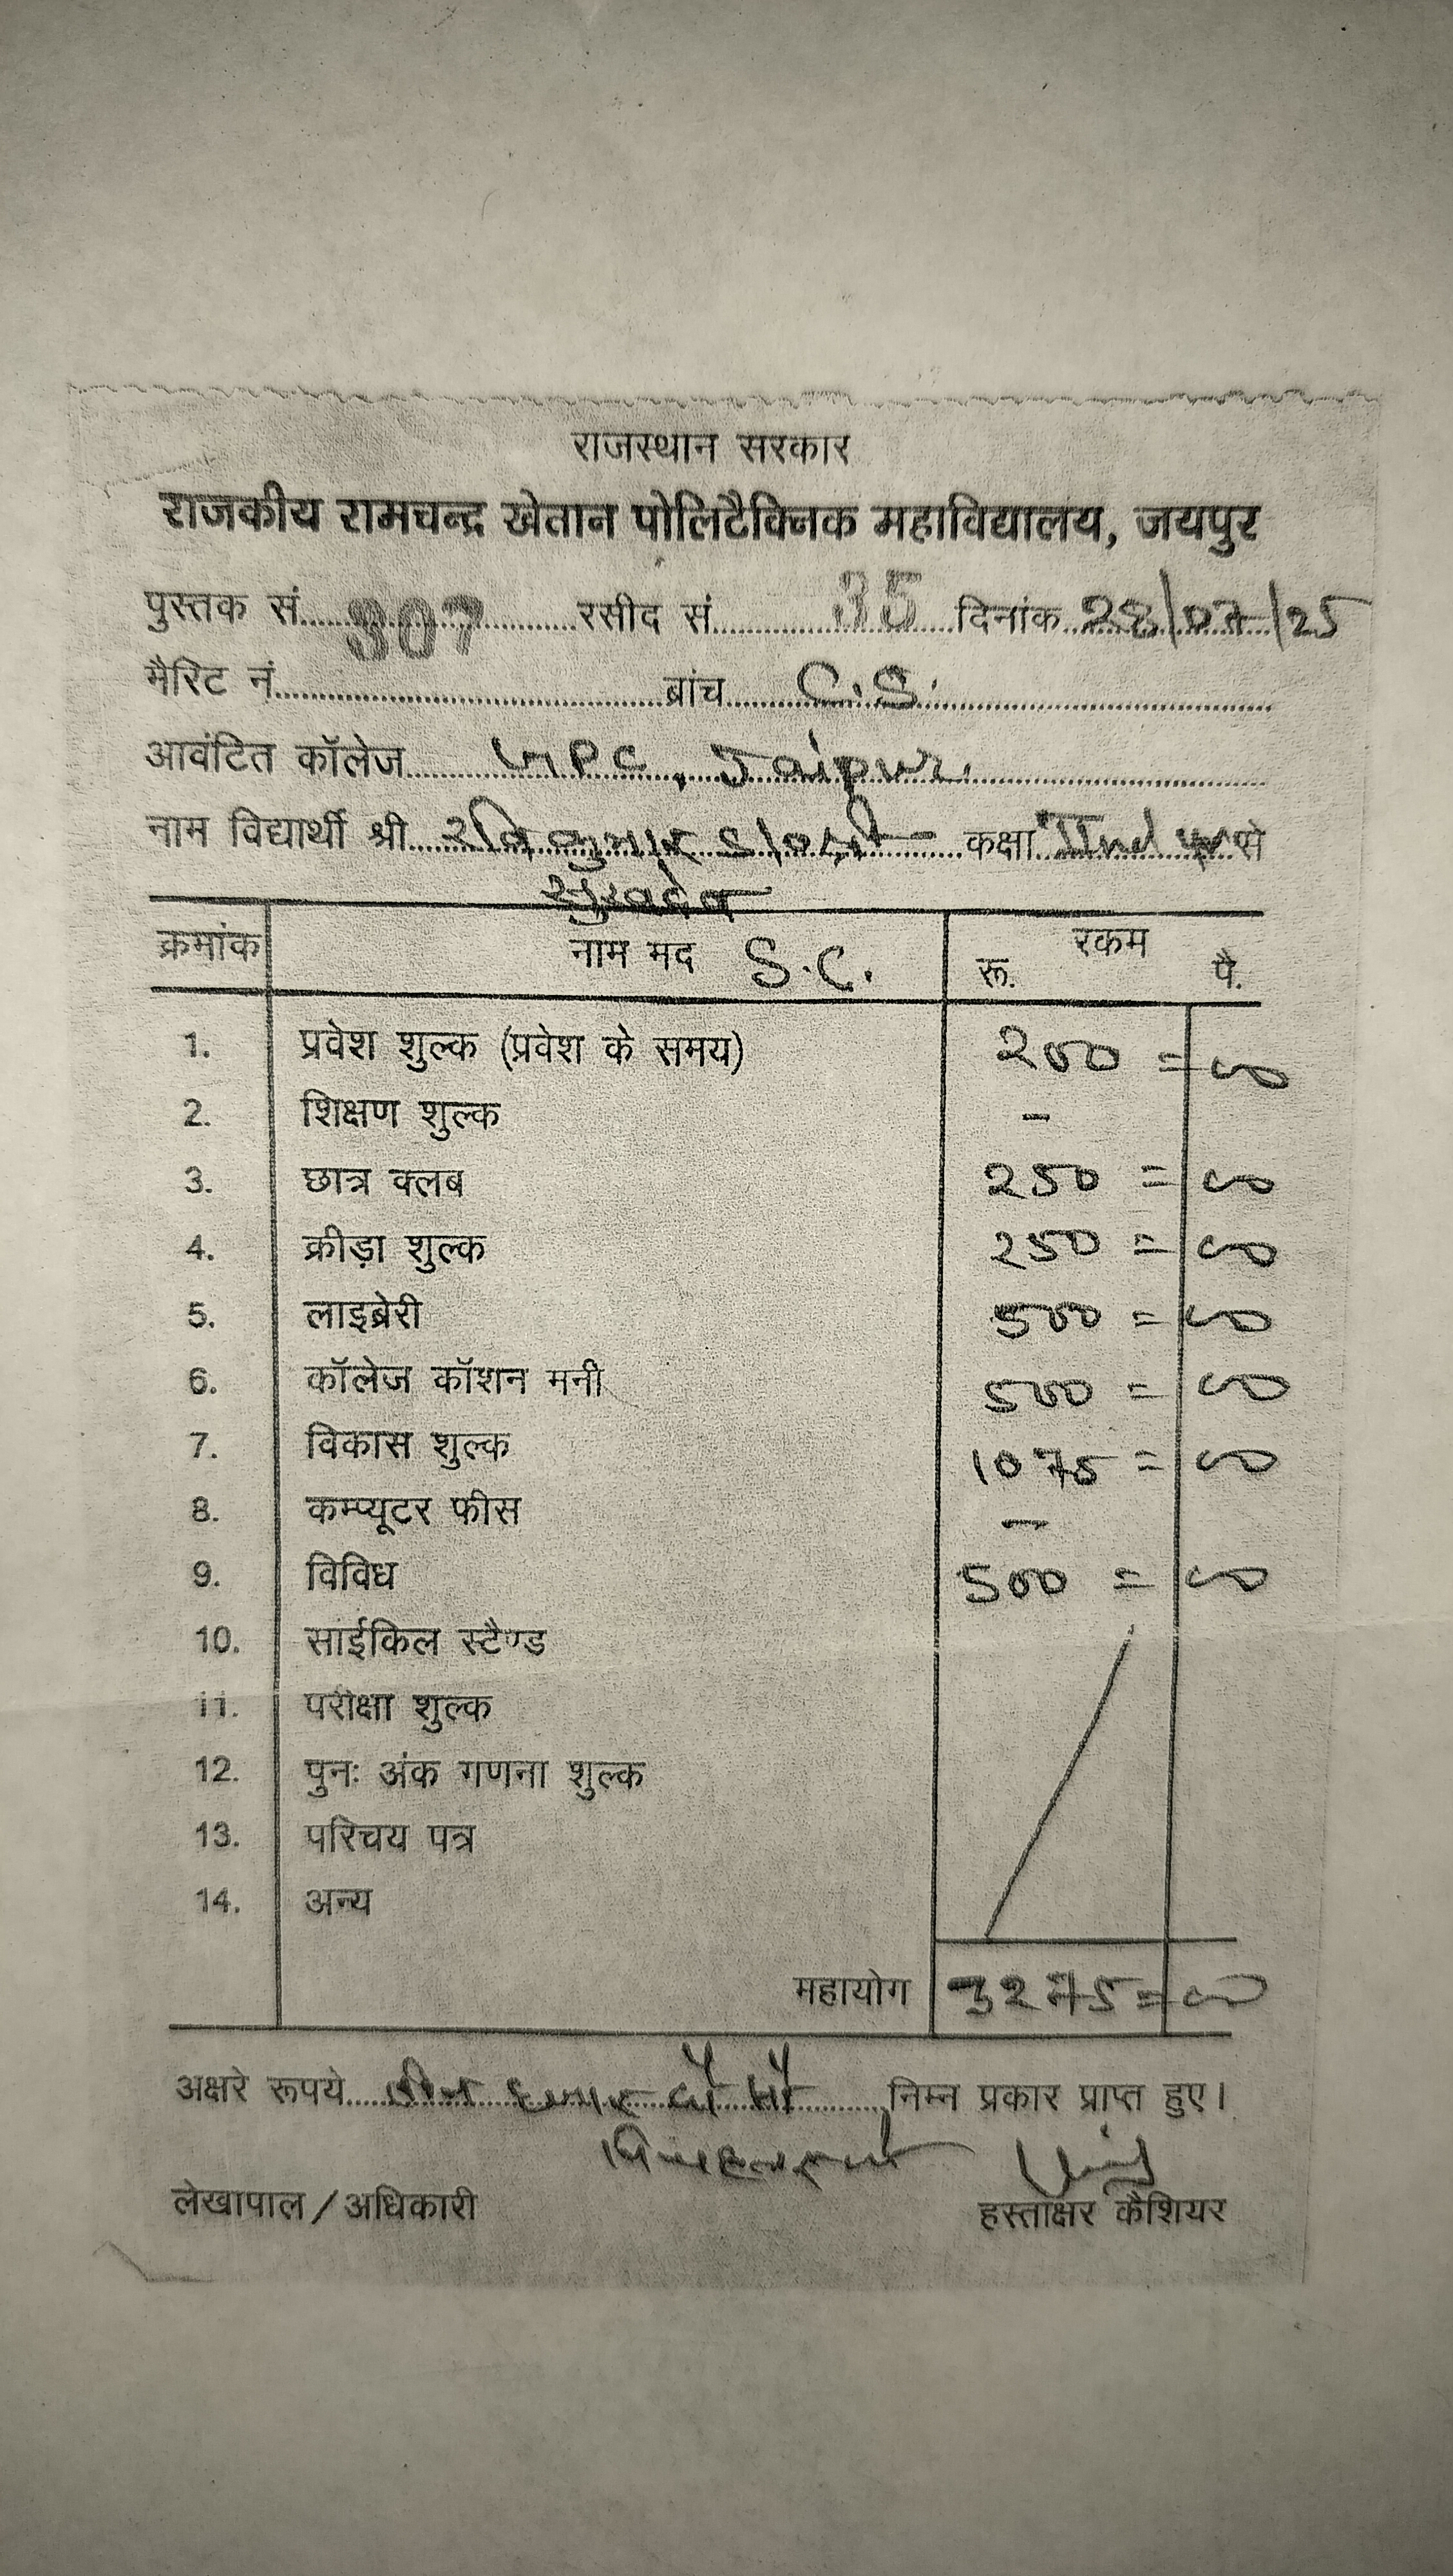 राजस्थान सरकार
राजकीय रामचन्द्र खेतान पोलिटैक्निक महाविद्यालय, जयपुर
पुस्तक सं. 307 रसीद सं. 35 दिनांक 28/07/25
मैरिट नं. ब्रांच C.S.
आवंटित कॉलेज GPC, Jaipur
नाम विद्यार्थी श्री रवि कुमार S/o श्री कक्षा IInd yr से
सुखदेव
क्रमांक नाम मद S.C. रकम
रू. पै.
1. प्रवेश शुल्क (प्रवेश के समय) 200 = 00
2. शिक्षण शुल्क -
3. छात्र क्लब 250 = 00
4. क्रीड़ा शुल्क 250 = 00
5. लाइब्रेरी 500 = 00
6. कॉलेज कॉशन मनी 500 = 00
7. विकास शुल्क 1075 = 00
8. कम्प्यूटर फीस -
9. विविध 500 = 00
10. साईकिल स्टैण्ड
11. परीक्षा शुल्क
12. पुनः अंक गणना शुल्क
13. परिचय पत्र
14. अन्य
महायोग 3275 = 00
अक्षरे रूपये तीन हजार दो सौ निम्न प्रकार प्राप्त हुए।
लेखापाल / अधिकारी हस्ताक्षर कैशियर